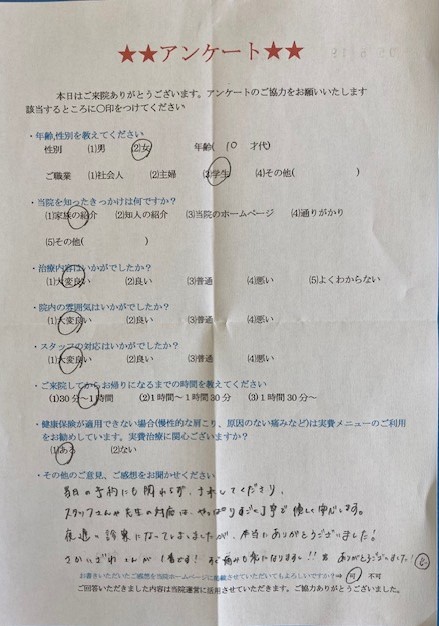 ★★アンケート★★
本日はご来院ありがとうございます。アンケートのご協力をお願いいたします
該当するところに〇印をつけてください
・年齢,性別を教えてください
性別 (1)男 (2)女 年齢( 10 才代)
ご職業 (1)社会人 (2)主婦 (3)学生 (4)その他( )
・当院を知ったきっかけは何ですか?
(1)家族の紹介 (2)知人の紹介 (3)当院のホームページ (4)通りがかり
(5)その他( )
・治療内容はいかがでしたか?
(1)大変良い (2)良い (3)普通 (4)悪い (5)よくわからない
・院内の雰囲気はいかがでしたか?
(1)大変良い (2)良い (3)普通 (4)悪い
・スタッフの対応はいかがでしたか?
(1)大変良い (2)良い (3)普通 (4)悪い
・ご来院してからお帰りになるまでの時間を教えてください
(1)30分～1時間 (2)1時間～1時間30分 (3)1時間30分～
・健康保険が適用できない場合(慢性的な肩こり、原因のない痛みなど)は実費メニューのご利用
をお勧めしています。実費治療に関心ございますか?
(1)ある (2)ない
・その他のご意見、ご感想をお聞かせください
当日の予約にも関わらず、してくださり、
スタッフさんや先生の対応は、やっぱりすごく丁寧で優しく安心します。
夜遅い診察になってしまいましたが、本当にありがとうございました!
さんが1番です! ありがとうございました!
お書きいただいたご感想を当院ホームページに掲載させていただいてもよろしいですか?⇒ 可 不可
ご回答いただきました内容は当院運営に活用させていただきます。ご協力ありがとうございました。